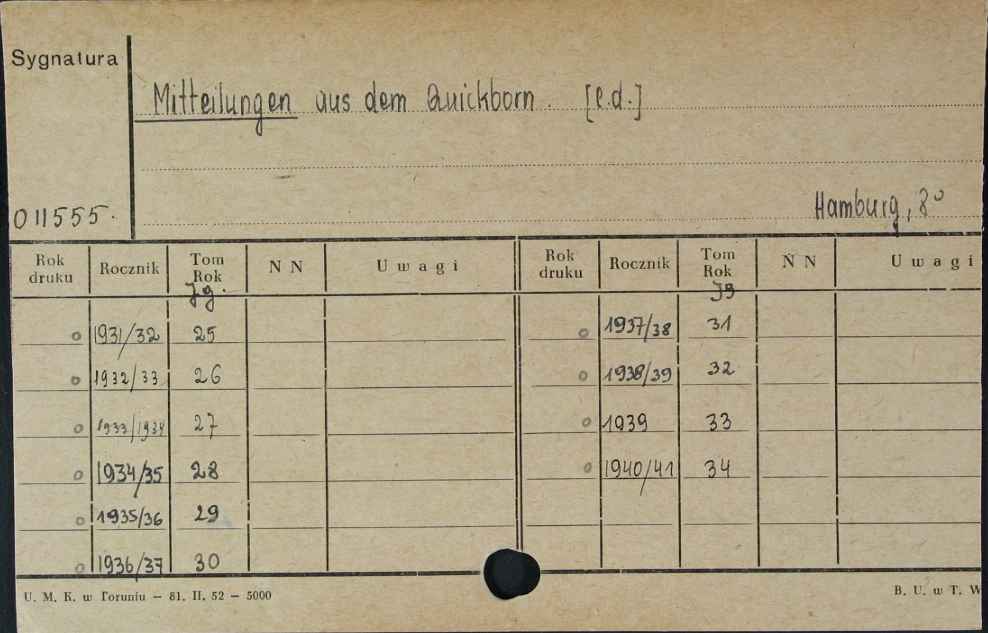 Sygnatura
Mitteilungen aus dem Quickborn. [e.d.]
011555.
Hamburg, 8°
Rok druku Rocznik Tom Rok NN Uwagi Rok druku Rocznik Tom Rok NN Uwagi
Jg. Jg
o 1931/32 25 o 1937/38 31
o 1932/33 26 o 1938/39 32
o 1933/1934 27 o 1939 33
o 1934/35 28 o 1940/41 34
o 1935/36 29
o 1936/37 30
U. M. K. w Toruniu — 81. II. 52 — 5000 B. U. w T. W